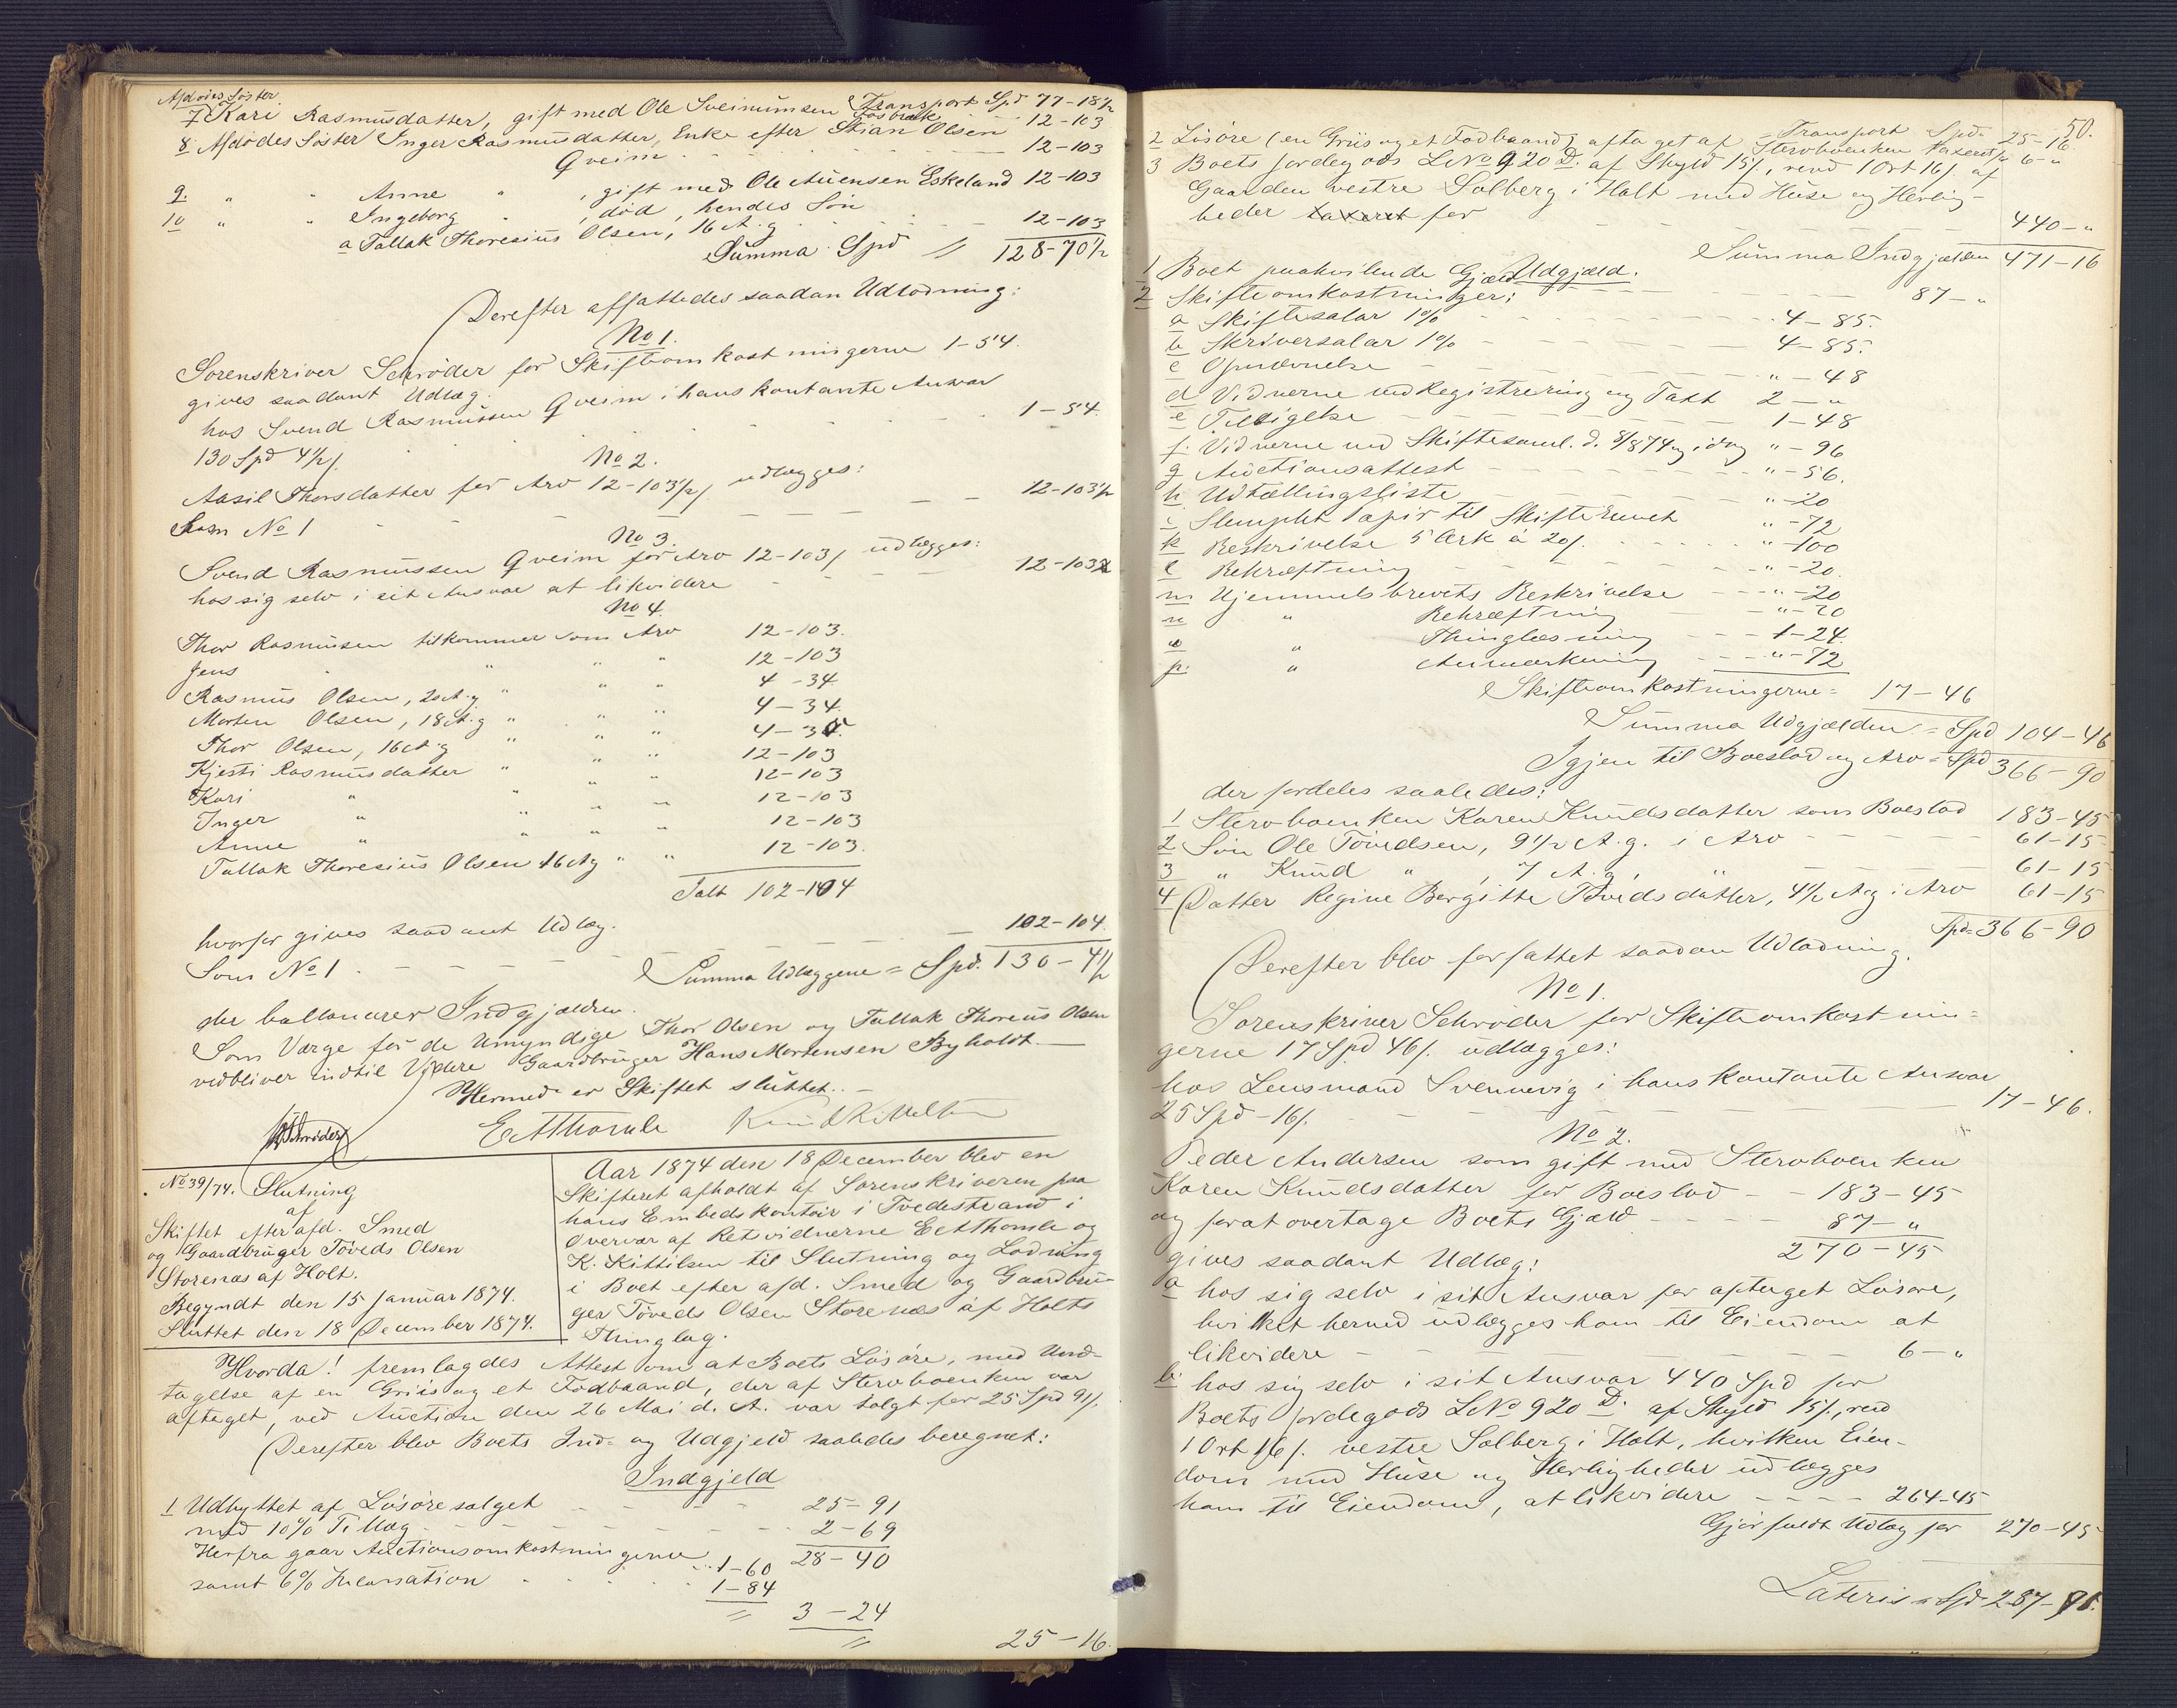 Afdødes Søster
7 Kari Rasmusdatter, gift med Ole Sveinumsen Transport Spd 77-18½
Fosbræk 12-103
8 Afdødes Søster Inger Rasmusdatter, Enke efter Stian Olsen
Qveim - - - 12-103
9. " " Anne " , gift med Ole Auensen Eskeland 12-103
10 " " Ingeborg " , død, hendes Søn
a Tallak Thoresius Olsen, 16 A. g. - - 12-103
Summa Spd = 128-70½
Derefter affattedes saadan Udlodning:
No 1.
Sorenskriver Schrøder for Skifteomkostningerne 1-54.
gives saadant Udlæg.
hos Svend Rasmussen Qveim i hans kontante Ansvar
130 Spd 4½ʃ. - - - 1-54.
No 2.
Aasil Thorsdatter for Arv 12-103½ʃ udlægges:
Som No 1 - - - 12-103½
No 3.
Svend Rasmussen Qveim for Arv 12-103ʃ udlægges:
hos sig selv i sit Ansvar at likvidere - - - 12-103
No 4.
Thor Rasmussen tilkommer som Arv 12-103.
Jens " " " " 12-103
Rasmus Olsen, 20 A. g " " " 4-34.
Morten Olsen, 18 A. g " " " 4-34.
Thor Olsen, 16 A. g " " " 4-35.
Kjesti Rasmusdatter " " " 12-103
Kari " " " " 12-103
Inger " " " " 12-103
Anne " " " " 12-103
Tallak Thoresius Olsen 16 Ag " " 12-103.
Ialt 102-104
hvorfor gives saadant Udlæg.
Som No 1. - - - 102-104.
Summa Udlæggene = Spd. 130-4½
der ballancerer Indgjælden.
Som Værge for de Umyndige Thor Olsen og Tallak Thoresius Olsen
vedbliver indtil Videre Gaardbruger Hans Mortensen Byholdt. —
Hermed er Skiftet sluttet. —
Schrøder E A Thomle Knud Kittelsen
No 39/74. Slutning
af
Skiftet efter afd. Smed
og Gaardbruger Töveds Olsen
Storenæs af Holt.
Begyndt den 15 Januar 1874.
Sluttet den 18 December 1874.
Aar 1874 den 18 December blev en
Skifteret afholdt af Sorenskriveren paa
hans Embedskontoir i Tvedestrand i
Overvær af Retsvidnerne E A Thomle og
K. Kittilsen til Slutning og Lodning
i Boet efter afd. Smed og Gaardbru-
ger Töveds Olsen Storenæs af Holts
Thinglag.
Hvorda! fremlagdes Attest om at Boets Løsøre, med Und-
tagelse af en Griis og et Fodbaand, der af Stervboenken var
aftaget, ved Auction den 26 Mai d. A. var solgt for 25 Spd 91ʃ.
Derefter blev Boets Ind- og Udgjeld saaledes beregnet:
Indgjeld
1 Udbyttet af Løsøresalget - - 25-91
med 10% Tillæg - - - 2-69
28-40
Herfra gaar Auctionsomkostningerne 1-60
samt 6% Incassation - - - 1-84
= 3-24
= 25-16.
50.
Transport Spd= 25-16
2 Løsøre (en Griis og et Fodbaand) aftaget af Stervboenken taxeret for 6-"
3 Boets Jordegods LNo 920 D. af Skyld 15ʃ, revd 1 Ort 16ʃ. af
Gaarden vestre Solberg i Holt med Huse og Herlig-
heder taxeret for - - - 440-"
Summa Indgjælden 471-16
Udgjæld.
1 Boet paahvilende Gjæld - - - 87-"
2 Skifteomkostninger:
a Skiftesalar 1% - - - 4-85.
b Skriversalar 1% - - - 4-85.
c Opnævnelse - - - "-48
d Vidnerne ved Registrering og Taxt 2-"
e Tilsigelse - - - 1-48
f. Vidnerne ved Skiftesaml. d. 8/8 74 og idag "-96
g Auctionsattest - - - "-56.
h Udtællingsliste - - - "-20
i Stemplet Papir til Skiftebrevet "-72
k Beskrivelse 5 Ark à 20ʃ. - - - "-100
l Bekræftning - - - "-20.
m Hjemmelsbrevets Beskrivelse - - - "-20
n " Bekræftning "-20
o " Thinglæsning - - - 1-24.
p. " Anmærkning - - - "-72
Skifteomkostningerne = 17-46
Summa Udgjælden = Spd 104-46
Igjen til Boeslod og Arv = Spd 366-90
der fordeles saaledes:
1 Stervboenken Karen Knudsdatter som Boeslod 183-45
2 Søn Ole Tövedsen, 9½ A. g. i Arv - - - 61-15
3 " Knud " , 7 A. g, " - - - 61-15
4 Datter Regine Bergitte Tövedsdatter, 4½ Ag i Arv 61-15
Spd= 366-90
Derefter blev forfattet saadan Udlodning.
No 1.
Sorenskriver Schrøder for Skifteomkostnin=
gerne 17 Spd 46ʃ. udlægges:
hos Lensmand Svennevig i hans kontante Ansvar
25 Spd-16ʃ. - - - 17-46.
No 2.
Peder Andersen som gift med Stervboenken
Karen Knudsdatter for Boeslod - - 183-45
og for at overtage Boets Gjæld - - - 87-"
270-45
gives saadant Udlæg:
a hos sig selv i sit Ansvar for aftaget Løsøre,
hvilket herved udlægges ham til Eiendom at
likvidere - - - 6-"
b. hos sig selv i sit Ansvar 440 Spd for
Boets Jordegods LNo 920 D. af Skyld 15ʃ, revd
1 Ort 16ʃ. vestre Solberg i Holt, hvilken Eien-
dom med Huse og Herligheder udlægges
ham til Eiendom, at likvidere - - - 264-45
Gjør fuldt Udlæg for 270-45
Lateris = Spd 287-91.